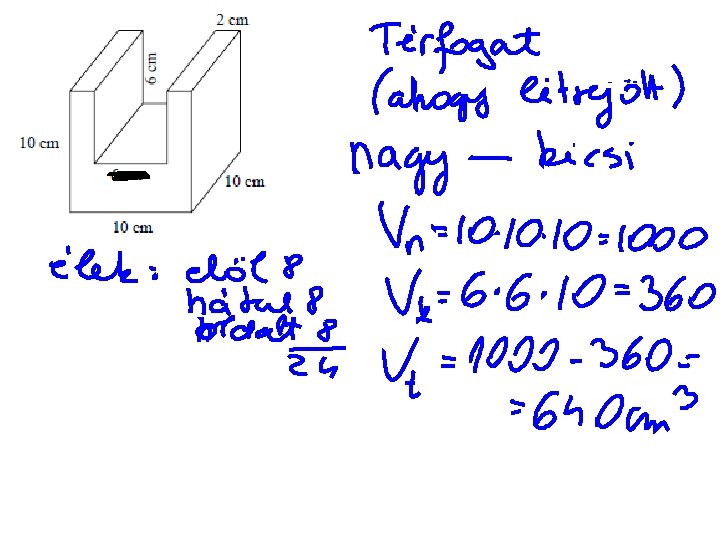 2 cm
6 cm
10 cm
10 cm
10 cm
Térfogat
(ahogy létrejött)
nagy — kicsi
Vn = 10·10·10 = 1000
Vk = 6·6·10 = 360
Vt = 1000 - 360 =
= 640 cm³
élek: elöl 8
hátul 8
oldalt 8
24